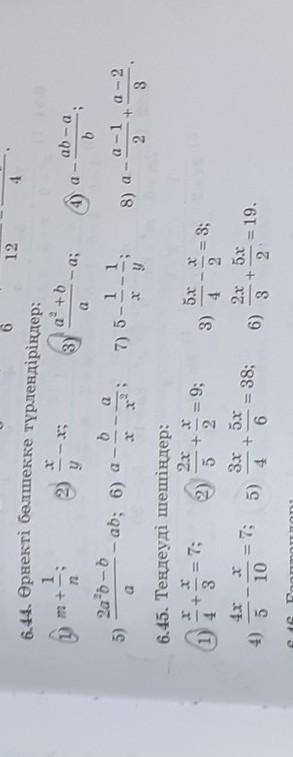 6 12 4 .
6.44. Өрнекті бөлшекке түрлендіріңдер:
1) m + 1/n; 2) x/y − x; 3) (a² + b)/a − a; 4) a − (ab − a)/b;
5) (2a²b − b)/a − ab; 6) a − b/x − a/x²; 7) 5 − 1/x − 1/y; 8) a − (a − 1)/2 + (a − 2)/3.
6.45. Теңдеуді шешіңдер:
1) x/4 + x/3 = 7; 2) 2x/5 + x/2 = 9; 3) 5x/4 − x/2 = 3;
4) 4x/5 − x/10 = 7; 5) 3x/4 + 5x/6 = 38; 6) 2x/3 + 5x/2 = 19.